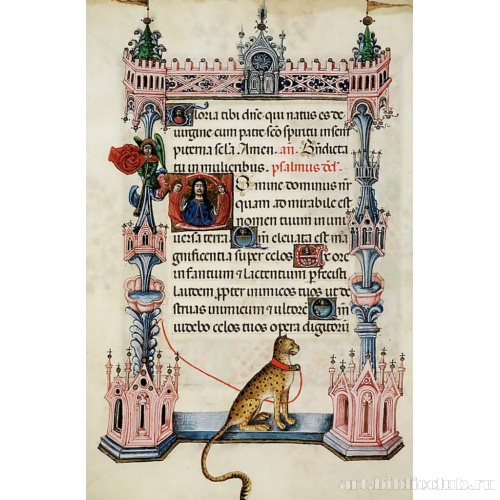 Gloria tibi dñe qui natus es de
virgine cum patre sc̃o spiritu in sem
piterna sc̃la. Amen. añ. Bñdicta
tu in mulieribus. psalmus
Domine dominus nr̃
quam admirabile est
nomen tuum in uni
versa terra Qm̃ elevata est ma
gnificentia super celos Ex ore
infantium et lactentium perfecisti
laudem ppter inimicos tuos ut de
struas inimicum et ultorẽ Qm̃
videbo celos tuos opera digitorũ
art.biblioclub.ru